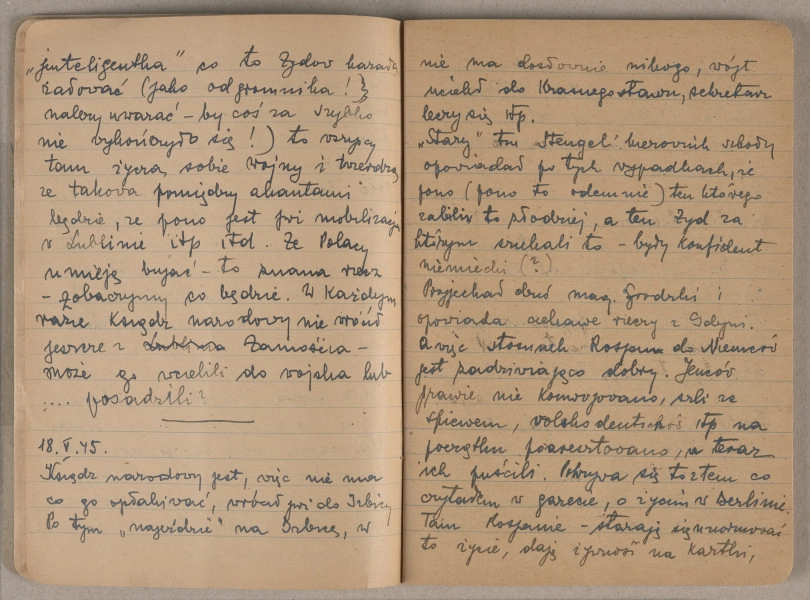 „inteligentka" co to Żydów każą
ładować (jako odgromnika!
należy uważać - by coś za szybko
nie wykończyło się!) to wszyscy
tam życzą sobie wojny i twierdzą
że takowa pomiędzy aliantami
będzie, że pono jest już mobilizacja
w Lublinie itp itd. Że Polacy
umieją bujać - to znana rzecz
- zobaczymy co będzie. W każdym
razie Ksiądz narodowy nie wrócił
jeszcze z Lublina Zamościa -
może go wcielili do wojska lub
.... posadzili?
18.V.45.
Ksiądz narodowy jest, więc nie ma
co go opłakiwać, wrócił już do Izbicy
Po tym „najeździe" na Izbicę, w
nie ma dosłownie nikogo, wójt
uciekł do Krasnegostawu, sekretarz
leczy się itp.
„Stary" ten Stengel kierownik szkoły
opowiadał po tych wypadkach, że
pono (pono to odemnie) ten którego
zabili to złodziej, a ten Żyd za
którym szukali to - były konfident
niemiecki (?)
Przyjechał dziś mag. Grodzki i
opowiada ciekawe rzeczy z Gdyni.
A więc stosunek Rosjan do Niemców
jest zadziwiająco dobry. Jeńców
prawie nie konwojowano, szli ze
śpiewem, volksdeutschów itp na
początku poaresztowano, a teraz
ich puścili. Pokrywa się to z tem co
czytałem w gazecie, o życiu w Berlinie.
Tam Rosjanie - starają się unormować
to życie, dają żywność na kartki,